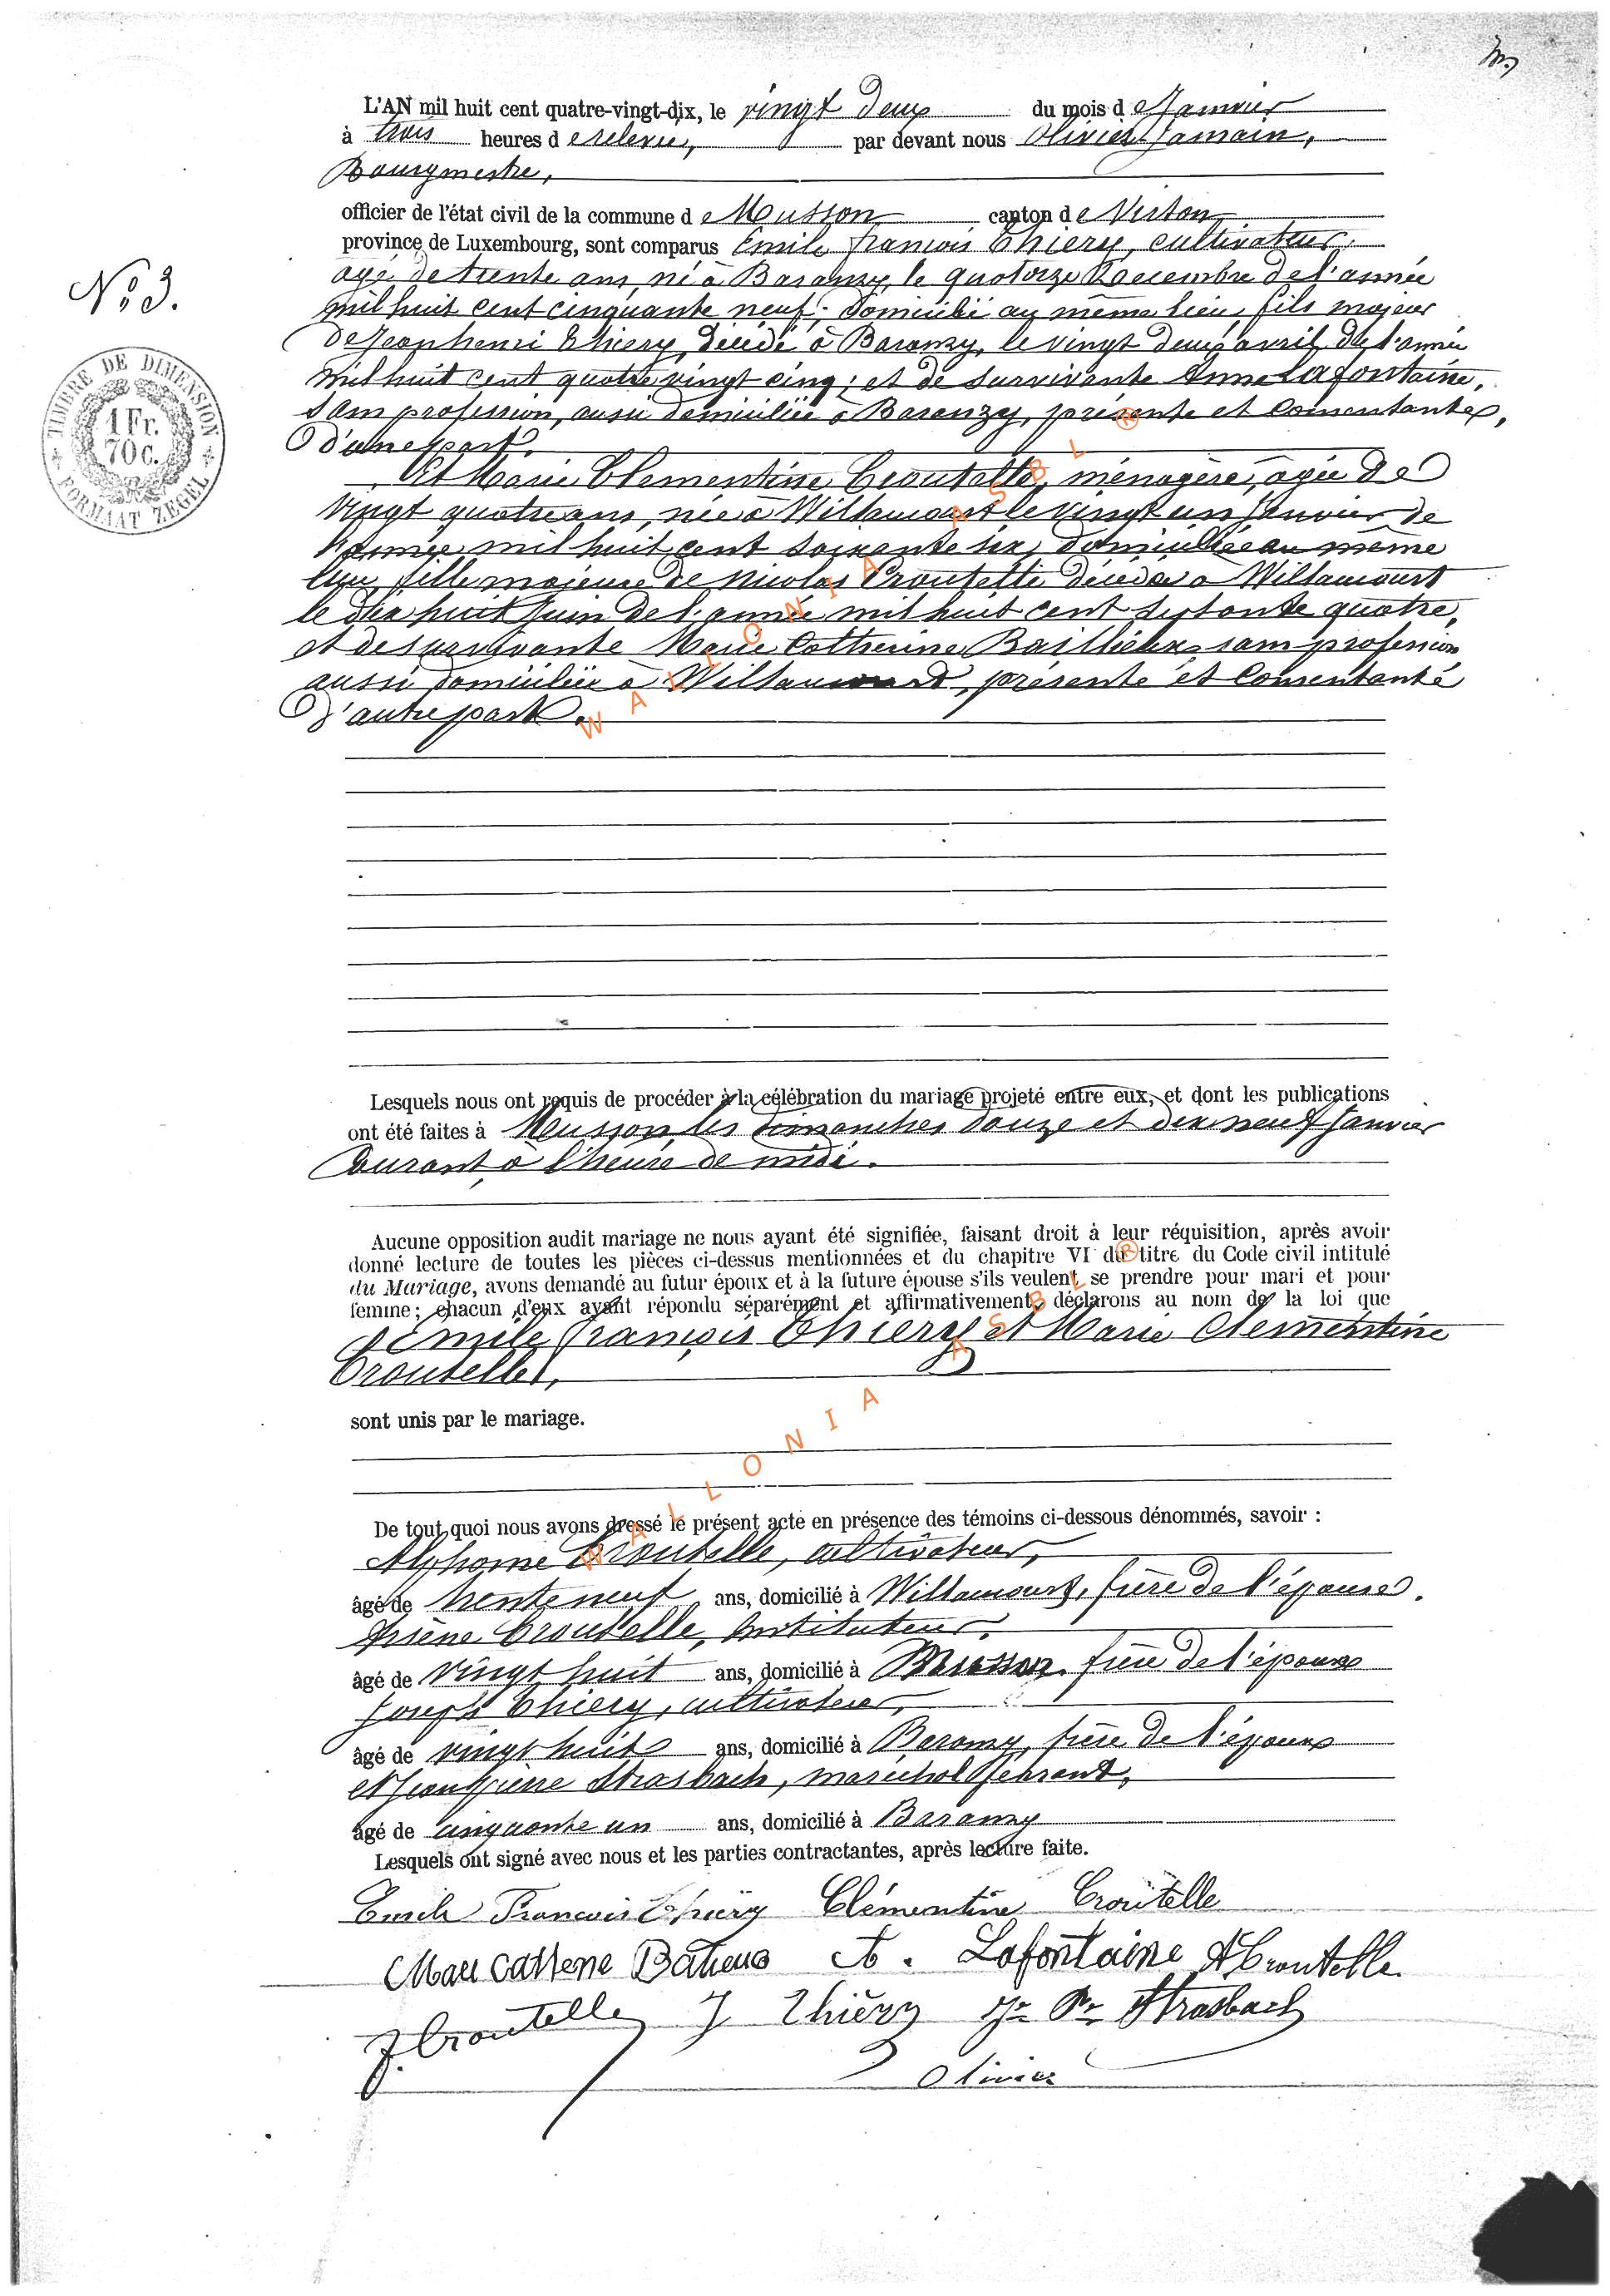 L'AN mil huit cent quatre-vingt-dix, le vingt deux du mois de Janvier
à trois heures de relevée, par devant nous Olivier Jamain,
Bourgmestre,
officier de l'état civil de la commune de Musson canton de Virton
province de Luxembourg, sont comparus Emile françois Thiery, cultivateur,
agé de trente ans, né à Baranzy, le quatorze Decembre de l'année
mil huit cent cinquante neuf; domicilié au même lieu, fils majeur
No 3.
de Jean henri Thiery, décédé à Baranzy, le vingt deux avril de l'année
mil huit cent quatre vingt cinq; et de survivante Anne Lafontaine,
TIMBRE DE DIMENSION
1 Fr.
70 c.
FORMAAT ZEGEL
sans profession, aussi domiciliée à Baranzy, présente et consentante,
d'une part.
Et Marie Clementine Croutelle, ménagère, agée de
vingt quatre ans, née à Willancourt le vingt un Janvier de
l'année mil huit cent soixante six, domiciliée au même
lieu, fille majeure de Nicolas Croutelle décédé à Willancourt
le dix huit Juin de l'année mil huit cent septante quatre,
et de survivante Marie Catherine Baillieux, sans profession
aussi domiciliée à Willancourt, présente et consentante
d'autre part.
WALLONIA ASBL ®
Lesquels nous ont requis de procéder à la célébration du mariage projeté entre eux, et dont les publications
ont été faites à Musson les dimanches douze et dix neuf Janvier
Courant, à l'heure de midi.
Aucune opposition audit mariage ne nous ayant été signifiée, faisant droit à leur réquisition, après avoir
donné lecture de toutes les pièces ci-dessus mentionnées et du chapitre VI du titre du Code civil intitulé
du Mariage, avons demandé au futur époux et à la future épouse s'ils veulent se prendre pour mari et pour
femme; chacun d'eux ayant répondu séparément et affirmativement, déclarons au nom de la loi que
Emile françois Thiery et Marie Clementine
Croutelle,
sont unis par le mariage.
WALLONIA ASBL ®
De tout quoi nous avons dressé le présent acte en présence des témoins ci-dessous dénommés, savoir :
Alphonse Croutelle, cultivateur,
âgé de trente neuf ans, domicilié à Willancourt, frère de l'épouse.
Croutelle, Instituteur,
âgé de vingt huit ans, domicilié à Musson, frère de l'épouse
Joseph Thiery, cultivateur,
âgé de vingt huit ans, domicilié à Baranzy, frère de l'époux
et Jean Pierre Strasbach, maréchal ferrant,
âgé de cinquante un ans, domicilié à Baranzy
Lesquels ont signé avec nous et les parties contractantes, après lecture faite.
Emile François Thiery Clémentine Croutelle
A. Lafontaine A Croutelle
J. Croutelle J Thiéry Jn Pre Strasbach
Olivier